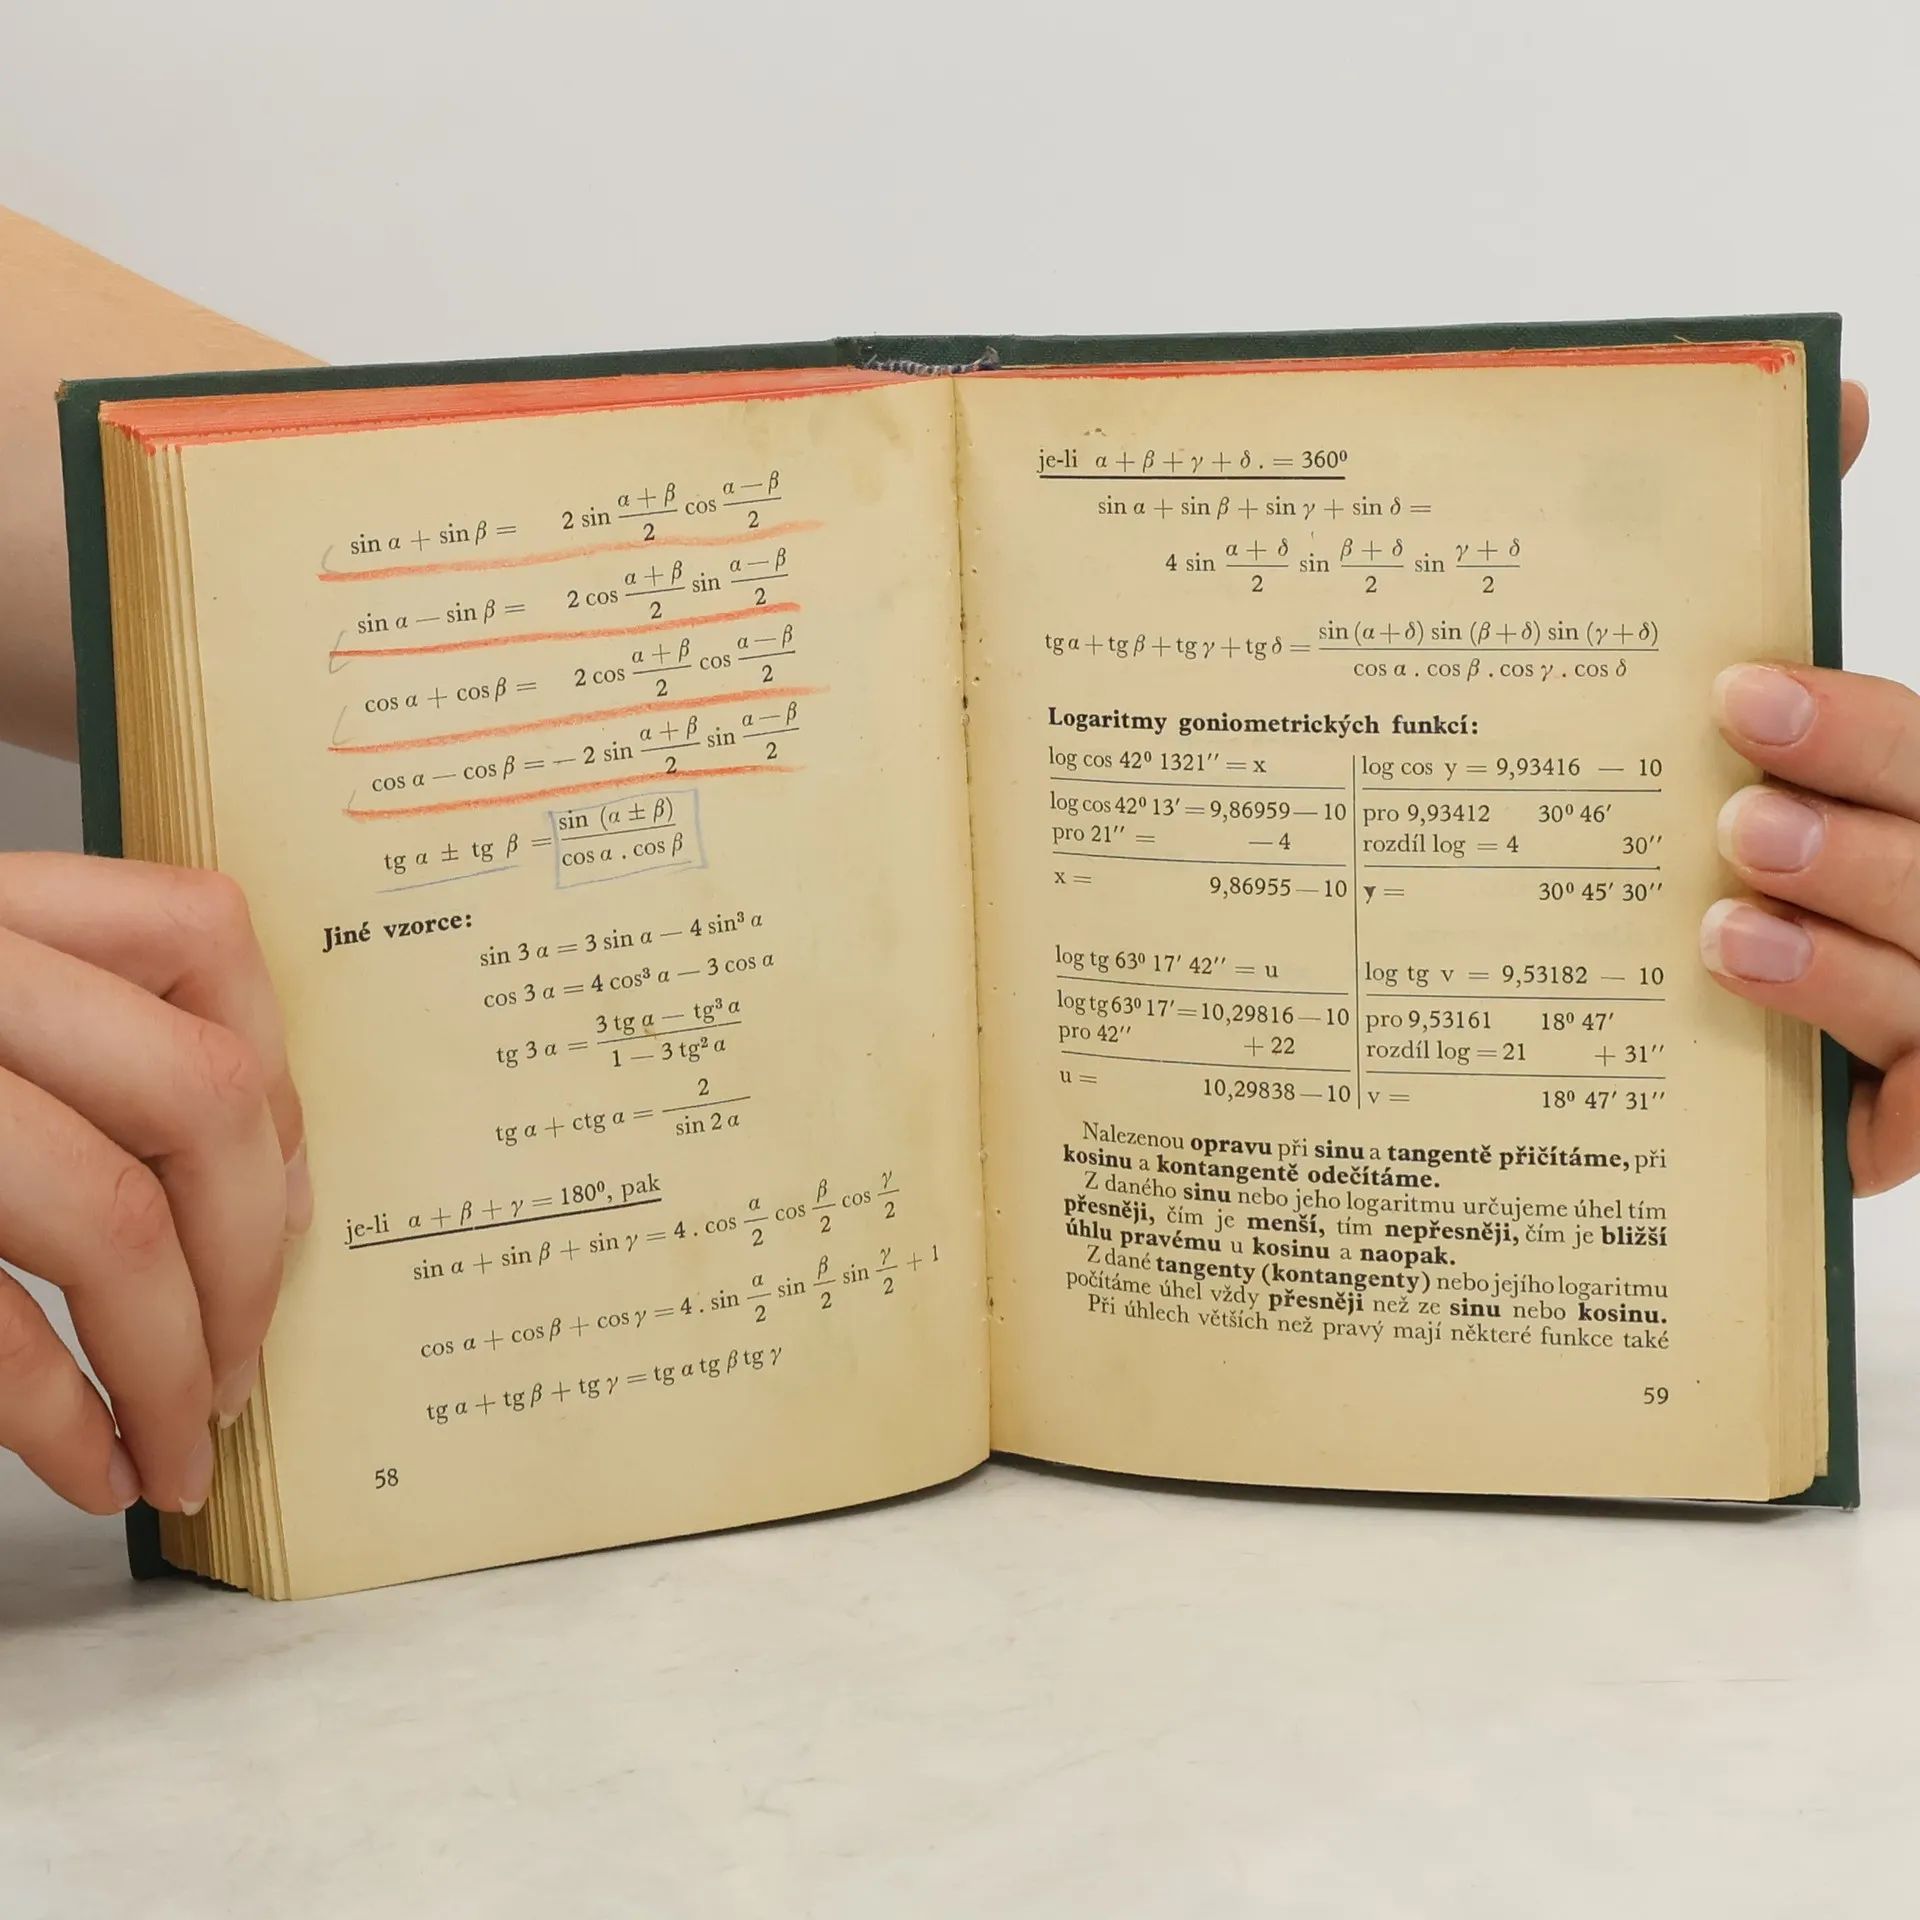 sin α + sin β = 2 sin (α + β)/2 cos (α — β)/2
sin α — sin β = 2 cos (α + β)/2 sin (α — β)/2
cos α + cos β = 2 cos (α + β)/2 cos (α — β)/2
cos α — cos β = — 2 sin (α + β)/2 sin (α — β)/2
tg α ± tg β = sin (α ± β)/cos α . cos β
Jiné vzorce:
sin 3 α = 3 sin α — 4 sin³ α
cos 3 α = 4 cos³ α — 3 cos α
tg 3 α = (3 tg α — tg³ α)/(1 — 3 tg² α)
tg α + ctg α = 2/sin 2 α
je-li α + β + γ = 180⁰, pak
sin α + sin β + sin γ = 4 . cos α/2 cos β/2 cos γ/2
cos α + cos β + cos γ = 4 . sin α/2 sin β/2 sin γ/2 + 1
tg α + tg β + tg γ = tg α tg β tg γ
58
je-li α + β + γ + δ . = 360⁰
sin α + sin β + sin γ + sin δ =
4 sin (α + δ)/2 sin (β + δ)/2 sin (γ + δ)/2
tg α + tg β + tg γ + tg δ = sin (α + δ) sin (β + δ) sin (γ + δ)/cos α . cos β . cos γ . cos δ
Logaritmy goniometrických funkcí:
log cos 42⁰ 1321′′ = x | log cos y = 9,93416 — 10
log cos 42⁰ 13′ = 9,86959 — 10 | pro 9,93412 30⁰ 46′
pro 21′′ = — 4 | rozdíl log = 4 30′′
x = 9,86955 — 10 | y = 30⁰ 45′ 30′′
log tg 63⁰ 17′ 42′′ = u | log tg v = 9,53182 — 10
log tg 63⁰ 17′ = 10,29816 — 10 | pro 9,53161 18⁰ 47′
pro 42′′ + 22 | rozdíl log = 21 + 31′′
u = 10,29838 — 10 | v = 18⁰ 47′ 31′′
Nalezenou opravu při sinu a tangentě přičítáme, při
kosinu a kontangentě odečítáme.
Z daného sinu nebo jeho logaritmu určujeme úhel tím
přesněji, čím je menší, tím nepřesněji, čím je bližší
úhlu pravému u kosinu a naopak.
Z dané tangenty (kontangenty) nebo jejího logaritmu
počítáme úhel vždy přesněji než ze sinu nebo kosinu.
Při úhlech větších než pravý mají některé funkce také
59